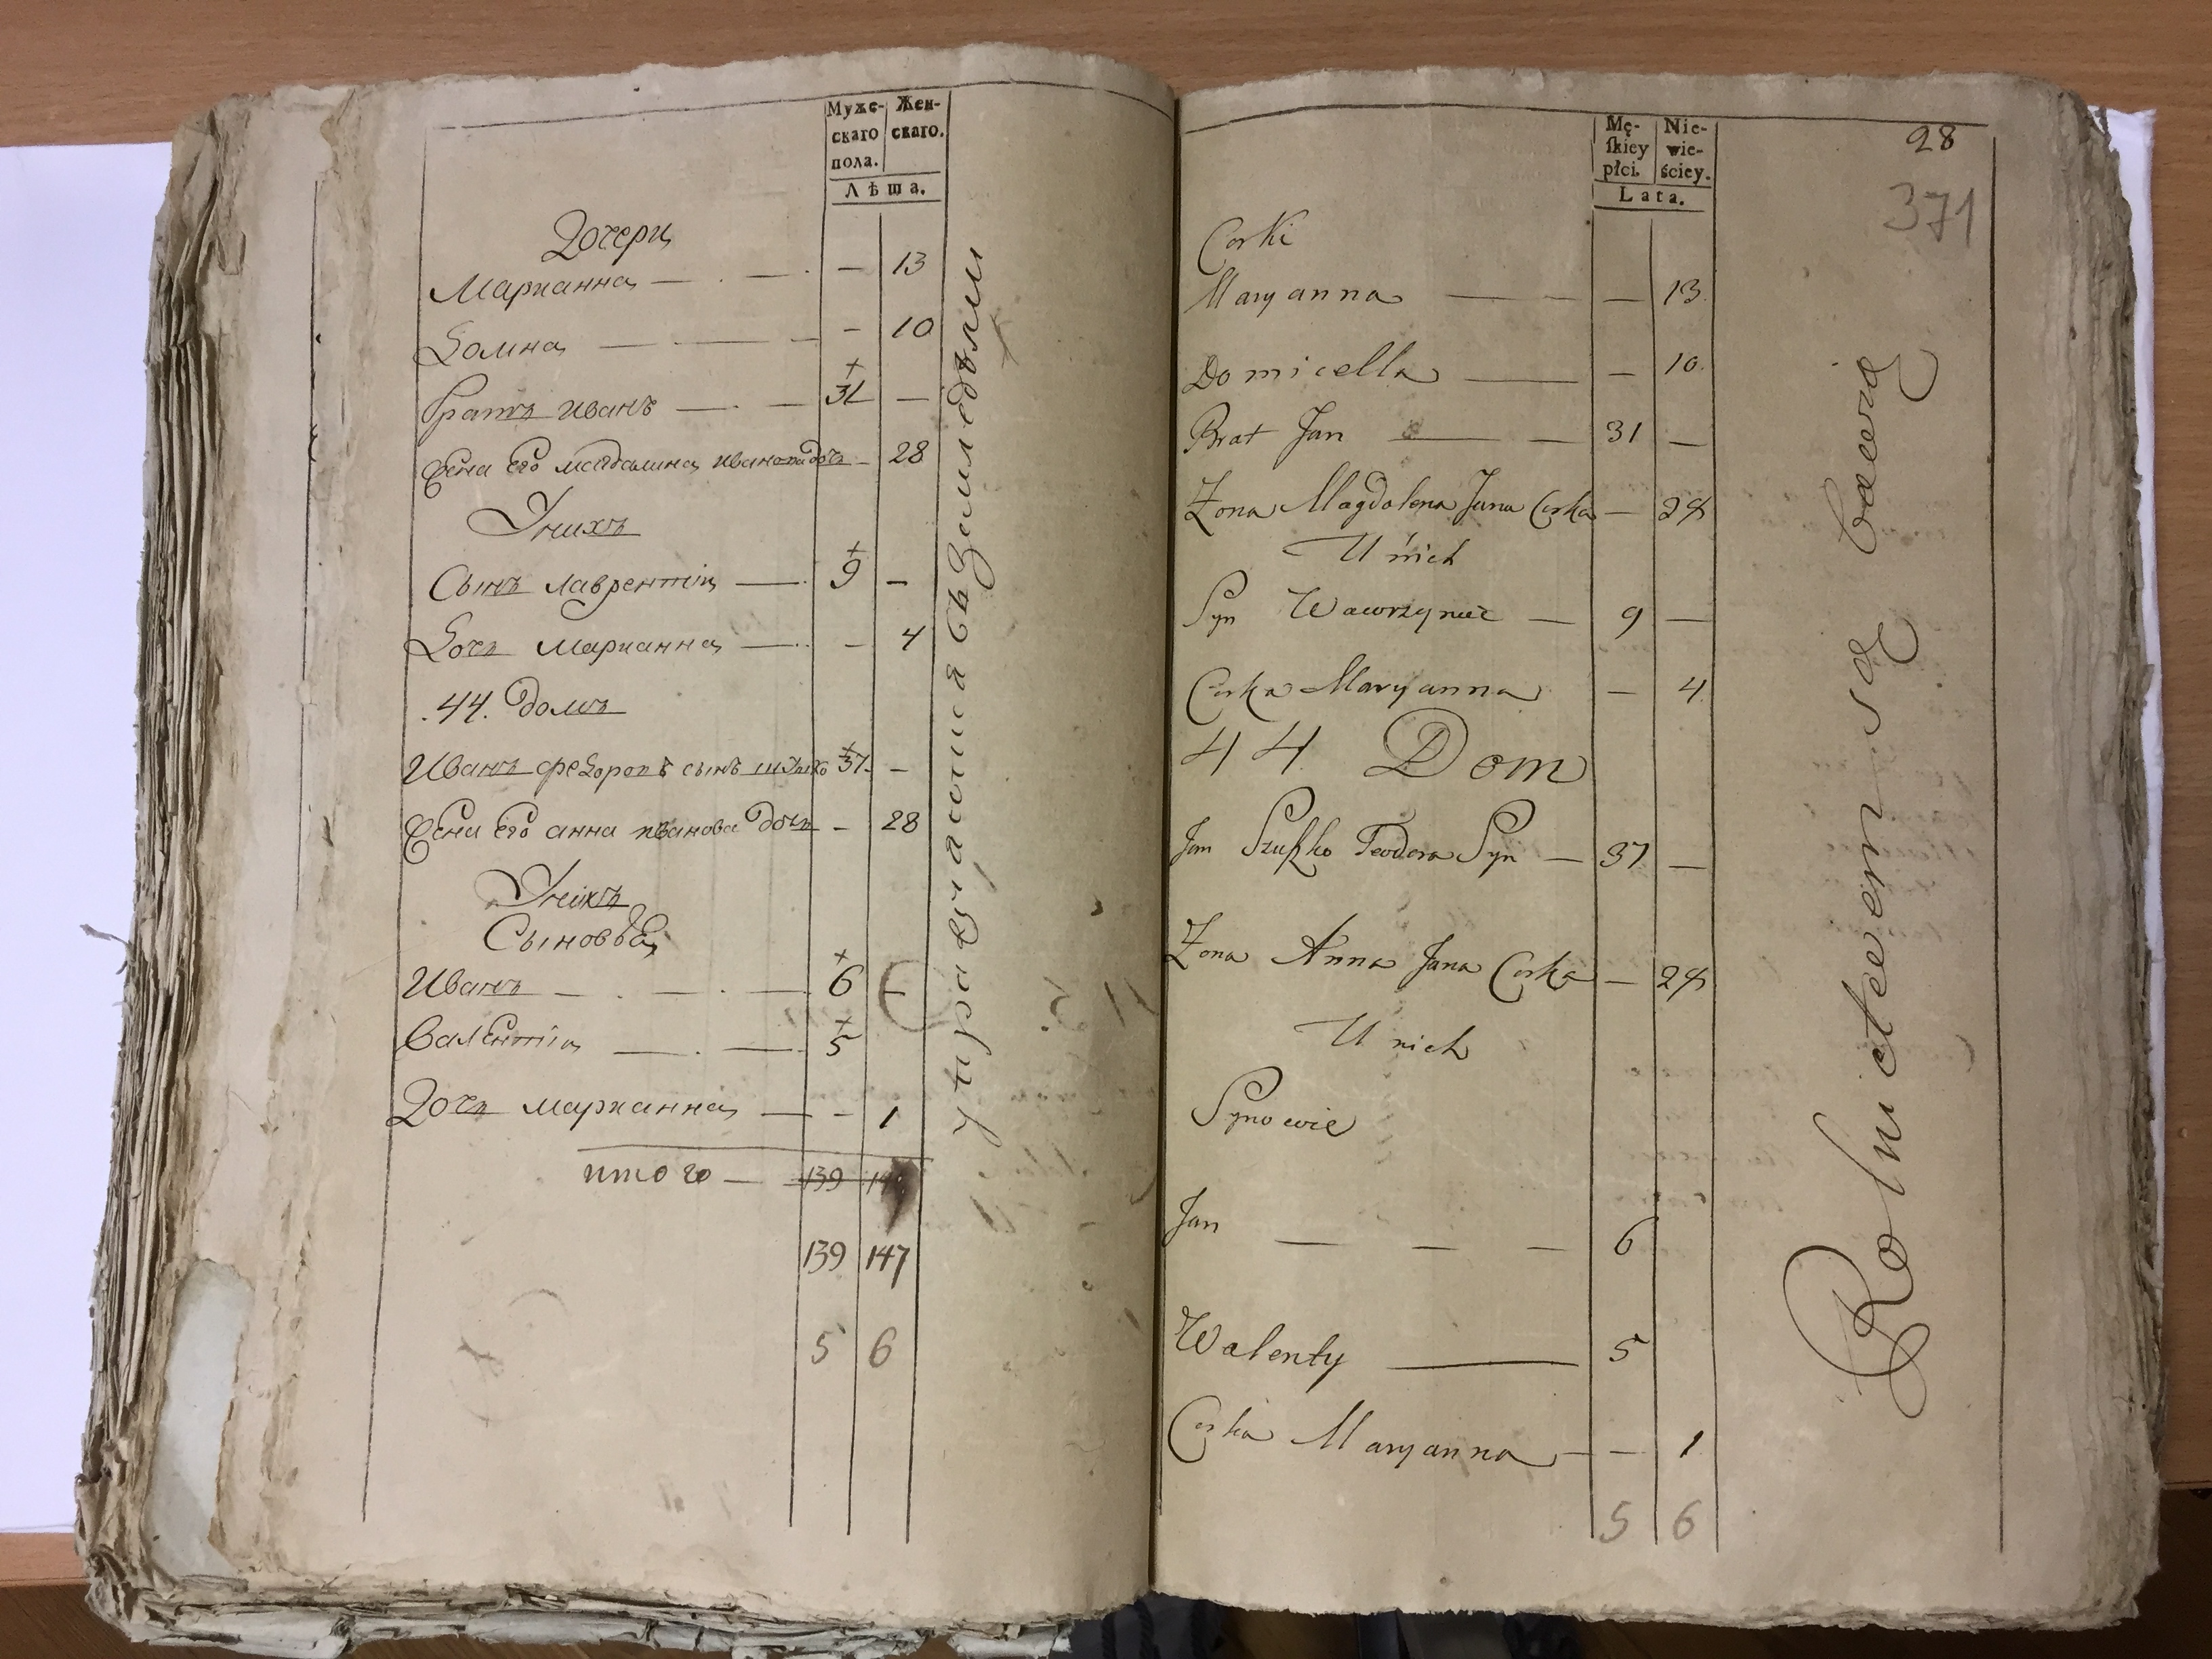 Муже-
скаго
пола.
Жен-
скаго.
Лѣта.
Дочери
Марианна — — - 13
Домна — — - 10
братъ иванъ — — 31 —
Жена Его магдалина иванова дочь - 28
Унихъ
Сынъ лаврентiи — 9 -
Дочь марианна — - 4
.44. домъ
Иванъ федоровъ сынъ шушко 37 -
Жена Его анна иванова дочь - 28
Унихъ
Сыновья
Иванъ — — — 6 —
Валентiи — — 5
Дочь марианна — - 1
итого — 139
139 147
5 6
съ Земледѣлiи
Mę-
skiey
płci.
Nie-
wie-
ściey.
Lata.
28
371
Corki
Maryanna — — — 13.
Domicella — — 10.
Brat Jan — — 31 —
Zona Magdalena Jana Corka — 28
U nich
Syn Wawrzyniec — 9 —
Corka Maryanna — 4
44 Dom
Jan Szuszko Teodora Syn — 37 —
Zona Anna Jana Corka — 28
U nich
Synowie
Jan — — — 6
Walenty — 5
Corka Maryanna — — 1
5 6
Rolnictwem są bawią